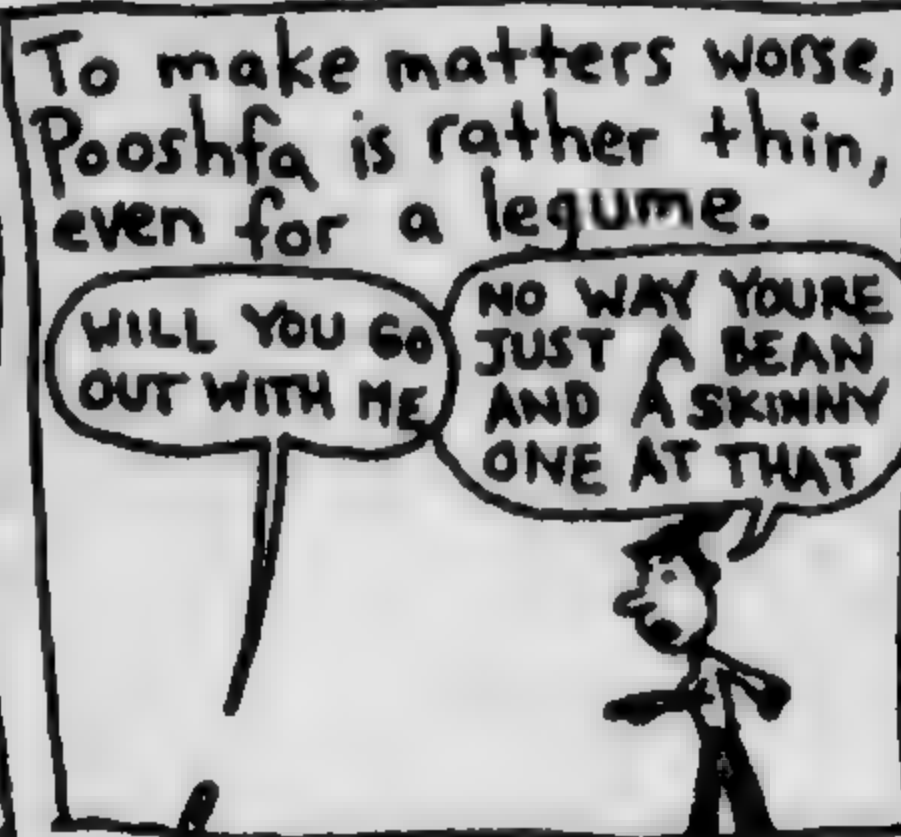 To make matters worse,
Pooshfa is rather thin,
even for a legume.
WILL YOU GO
OUT WITH ME
NO WAY YOURE
JUST A BEAN
AND A SKINNY
ONE AT THAT